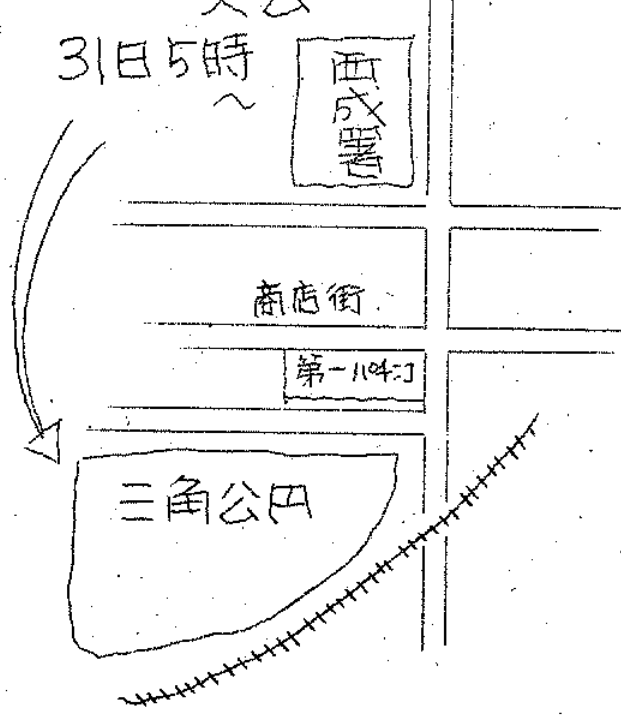 31日5時
～
西成署
商店街
第一パチンコ
三角公円